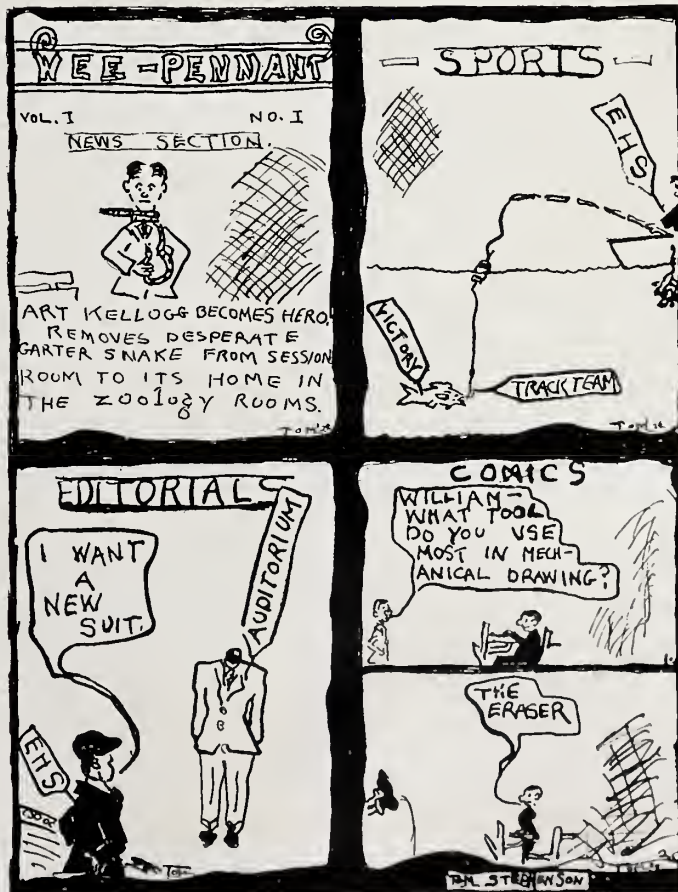 WEE-PENNANT
VOL. I NO. I
NEWS SECTION.
ART KELLOGG BECOMES HERO.
REMOVES DESPERATE
GARTER SNAKE FROM SESSION
ROOM TO ITS HOME IN
THE ZOOlOgY ROOMS.
- SPORTS -
EHS
VICTORY
TRACK TEAM
EDITORIALS
I WANT
A
NEW
SUIT.
AUDITORIUM
EHS
COMICS
WILLIAM-
WHAT TOOL
DO YOU USE
MOST IN MECH-
ANICAL DRAWING?
THE
ERASER
TOM STEPHENSON